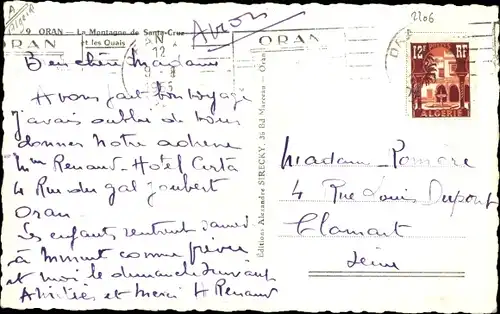 A
Algérie
9 ORAN – La Montagne de Santa-Cruz
et les Quais
ORAN
N
12
Avion
ORAN
2206
12F RF
ALGERIE
Bien chère Madame
Avons fait bon voyage
J'avais oublié de vous
donner notre adresse
Mme Renaud - Hotel Cirta
4 Rue du gal Joubert
Oran
Les enfants rentrent samedi
à minuit comme prévu
et moi le dimanche suivant
Amitiés et Merci H Renaud
Editions Alexandre SERECKY, 36 Bd Marceau - Oran
Madame Pomère
4 Rue Louis Dupont
Clamart
Seine